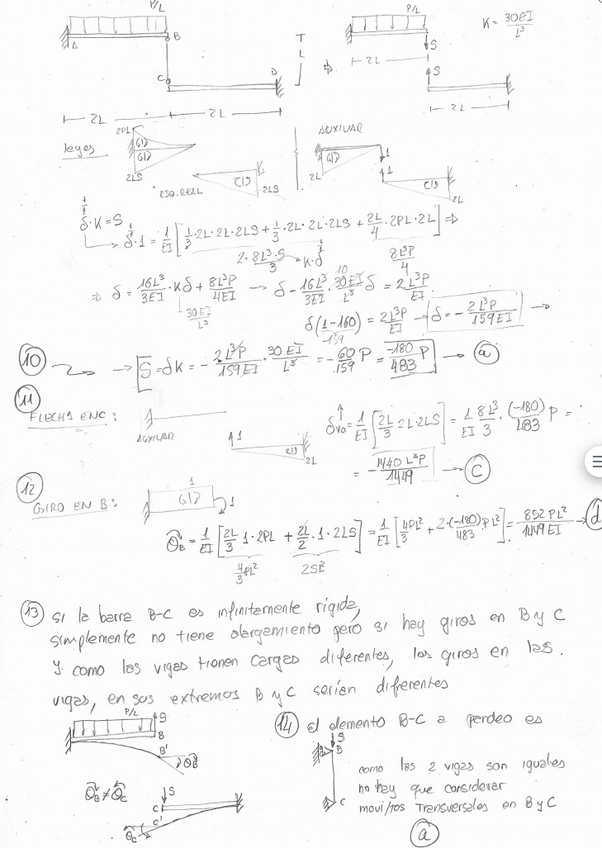 P/L
A
B
C
D
2L
2L
⇒
P/L
S
2L
S
2L
K = 30EI/L³
leyes
2PL
2LS
2LS
AUXILIAR
2L
1
1
2L
δ·K=S
δ·1 = 1/EI [1/3·2L·2L·2LS + 1/3·2L·2L·2LS + 2L/4·2PL·2L] ⇒
2·8L³·S/3 K·δ 8L³P/4
⇒ δ = 16L³/3EI · Kδ + 8L³P/4EI → δ - 16L³/3EI · 30EI/L³ δ = 2L³P/EI
10
30EI/L³
δ(1-160) = 2L³P/EI → δ = - 2L³P/159EI →
-159
10 → S = δK = - 2L³P/159EI · 30EI/L³ = - 60/159 P = -180/483 P → a
11
FLECHA EN C:
AUXILIAR
1
2L
δvo = 1/EI [2L/3 2L·2LS] = 1/EI 8L³/3 · (-180)/483 P =
= - 1440L³P/1449 → C
12
GIRO EN B:
1
1
θB = 1/EI [2L/3 1·2PL + 2L/2·1·2LS] = 1/EI [4PL²/3 + 2·(-180)/483 PL²] = 852PL²/1449EI → d
4/3 PL²
2SL²
13 Si la barra B-C es infinitamente rígida,
simplemente no tiene alargamiento pero si hay giros en B y C
Y como las vigas tienen cargas diferentes, los giros en las.
vigas, en sus extremos B y C serían diferentes
P/L
S
B
B'
θB
θB ≠ θC
S
C
C'
θC
14 El elemento B-C a pandeo es
S
B
C
como las 2 vigas son iguales
no hay que considerar
movi/tos transversales en B y C
a